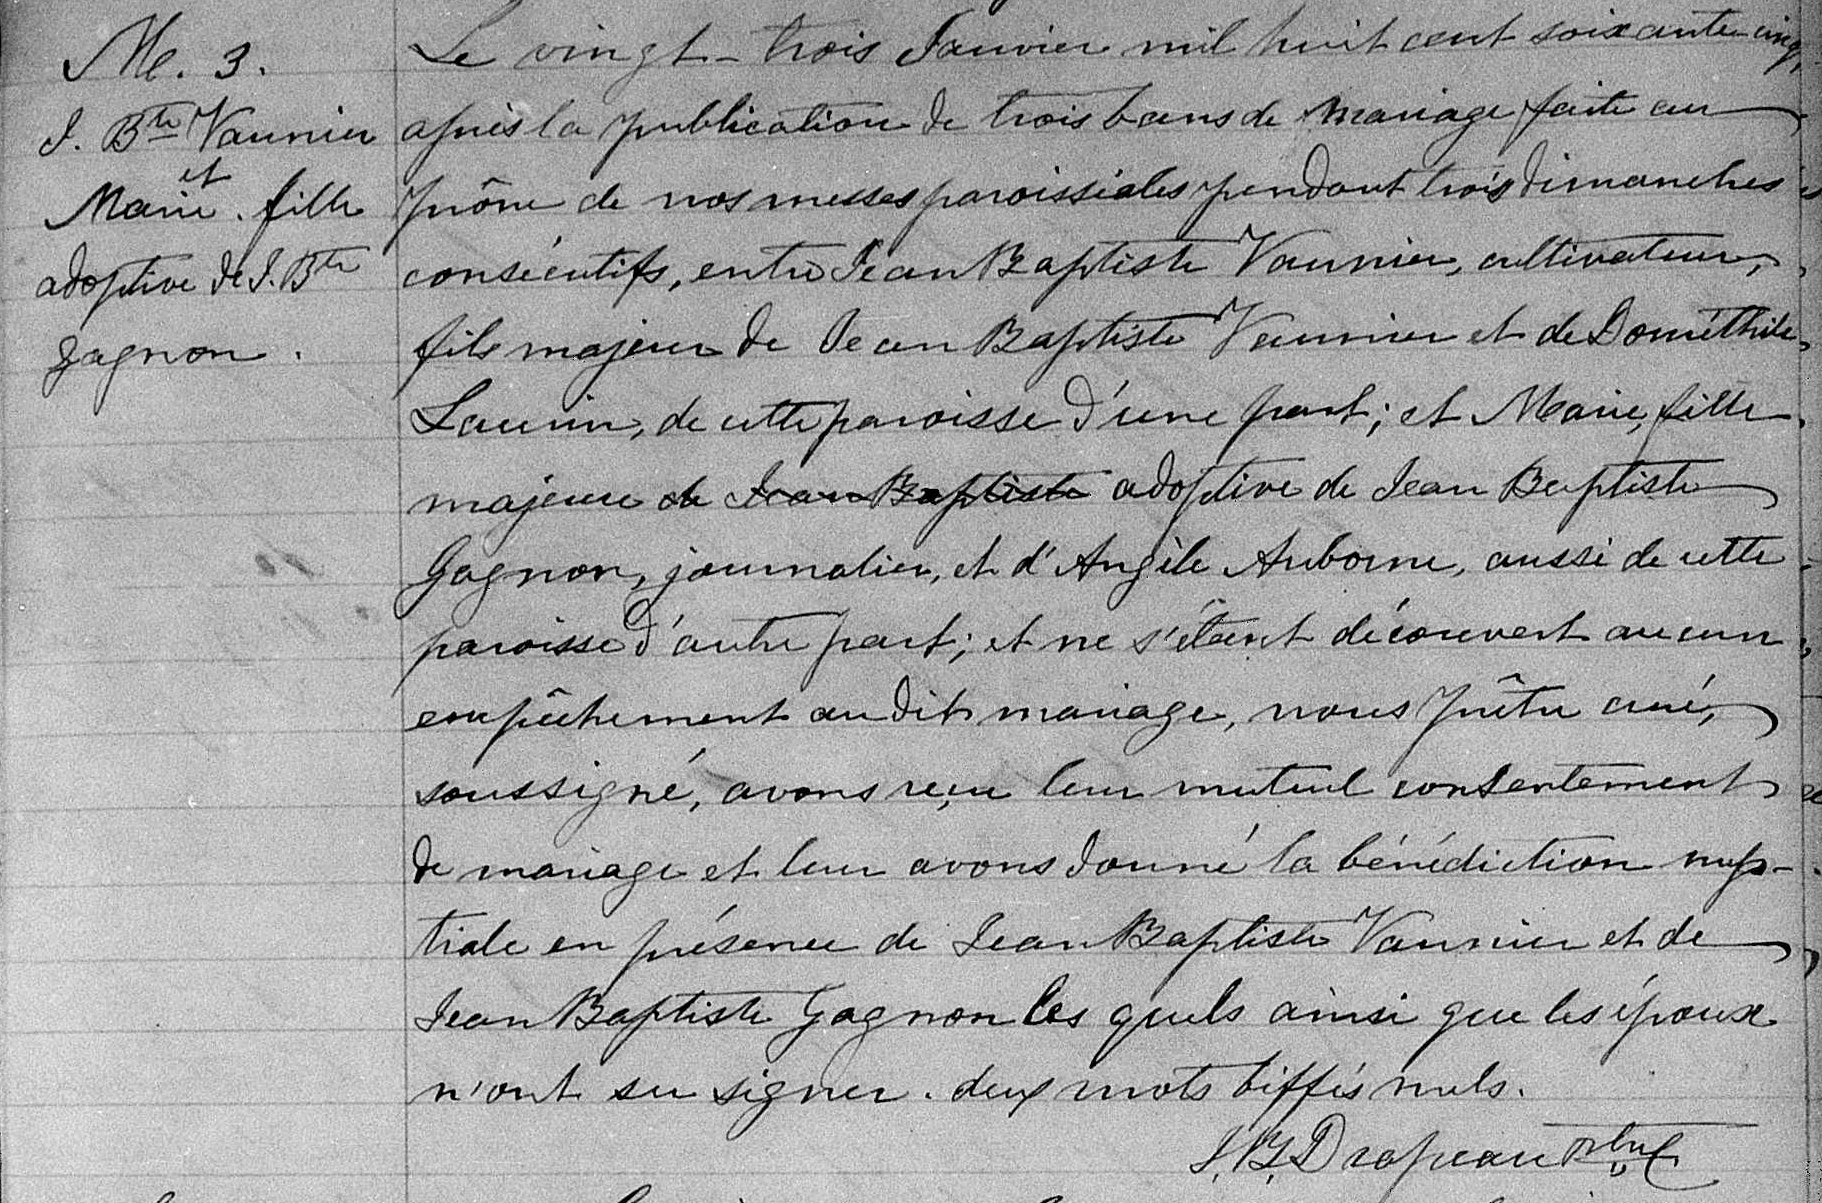 M. 3.
J. Bte Vaunier
et
Marie. fille
adoptive de J. Bte
Gagnon.
Le vingt-trois Janvier mil huit cent soixante-cinq,
après la publication de trois bans de mariage faite au
prône de nos messes paroissiales pendant trois dimanches
consécutifs, entre Jean Baptiste Vaunier, cultivateur,
fils majeur de Jean Baptiste Vaunier et de Dométhile
Laurin, de cette paroisse d'une part; et Marie, fille
majeure de Jean Baptiste adoptive de Jean Baptiste
Gagnon, journalier, et d'Angèle Auborne, aussi de cette
paroisse d'autre part; et ne s'étant découvert aucun
empêchement au dit mariage, nous prêtre curé,
soussigné, avons reçu leur mutuel consentement
de mariage et leur avons donné la bénédiction nup-
tiale en présence de Jean Baptiste Vaunier et de
Jean Baptiste Gagnon les quels ainsi que les époux
n'ont su signer. deux mots biffés nuls.
Drapeau Ptre